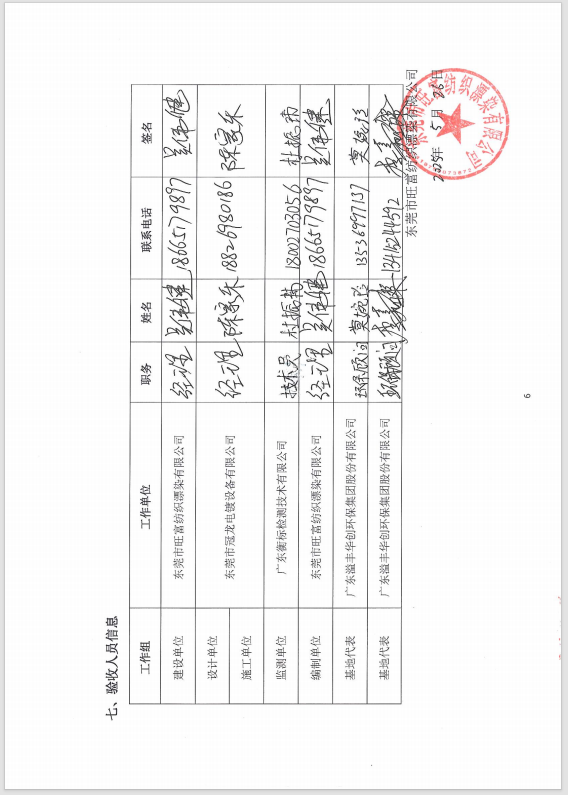 七、验收人员信息
工作组 工作单位 职务 姓名 联系电话 签名
建设单位 东莞市旺富纺织漂染有限公司 经理 18665179897
设计单位 东莞市冠龙电镀设备有限公司 经理 陈家乐 18826980186 陈家乐
施工单位
监测单位 广东衡标检测技术有限公司 技术员 杜振南 18002703056 杜振南
编制单位 东莞市旺富纺织漂染有限公司 经理 18665179897
基地代表 广东溢丰华创环保集团股份有限公司 环保顾问 莫婉玲 13536997137 莫婉玲
基地代表 广东溢丰华创环保集团股份有限公司 环保顾问 13416244592
东莞市旺富纺织漂染有限公司
2025年5月26日
东莞市旺富纺织漂染有限公司
6